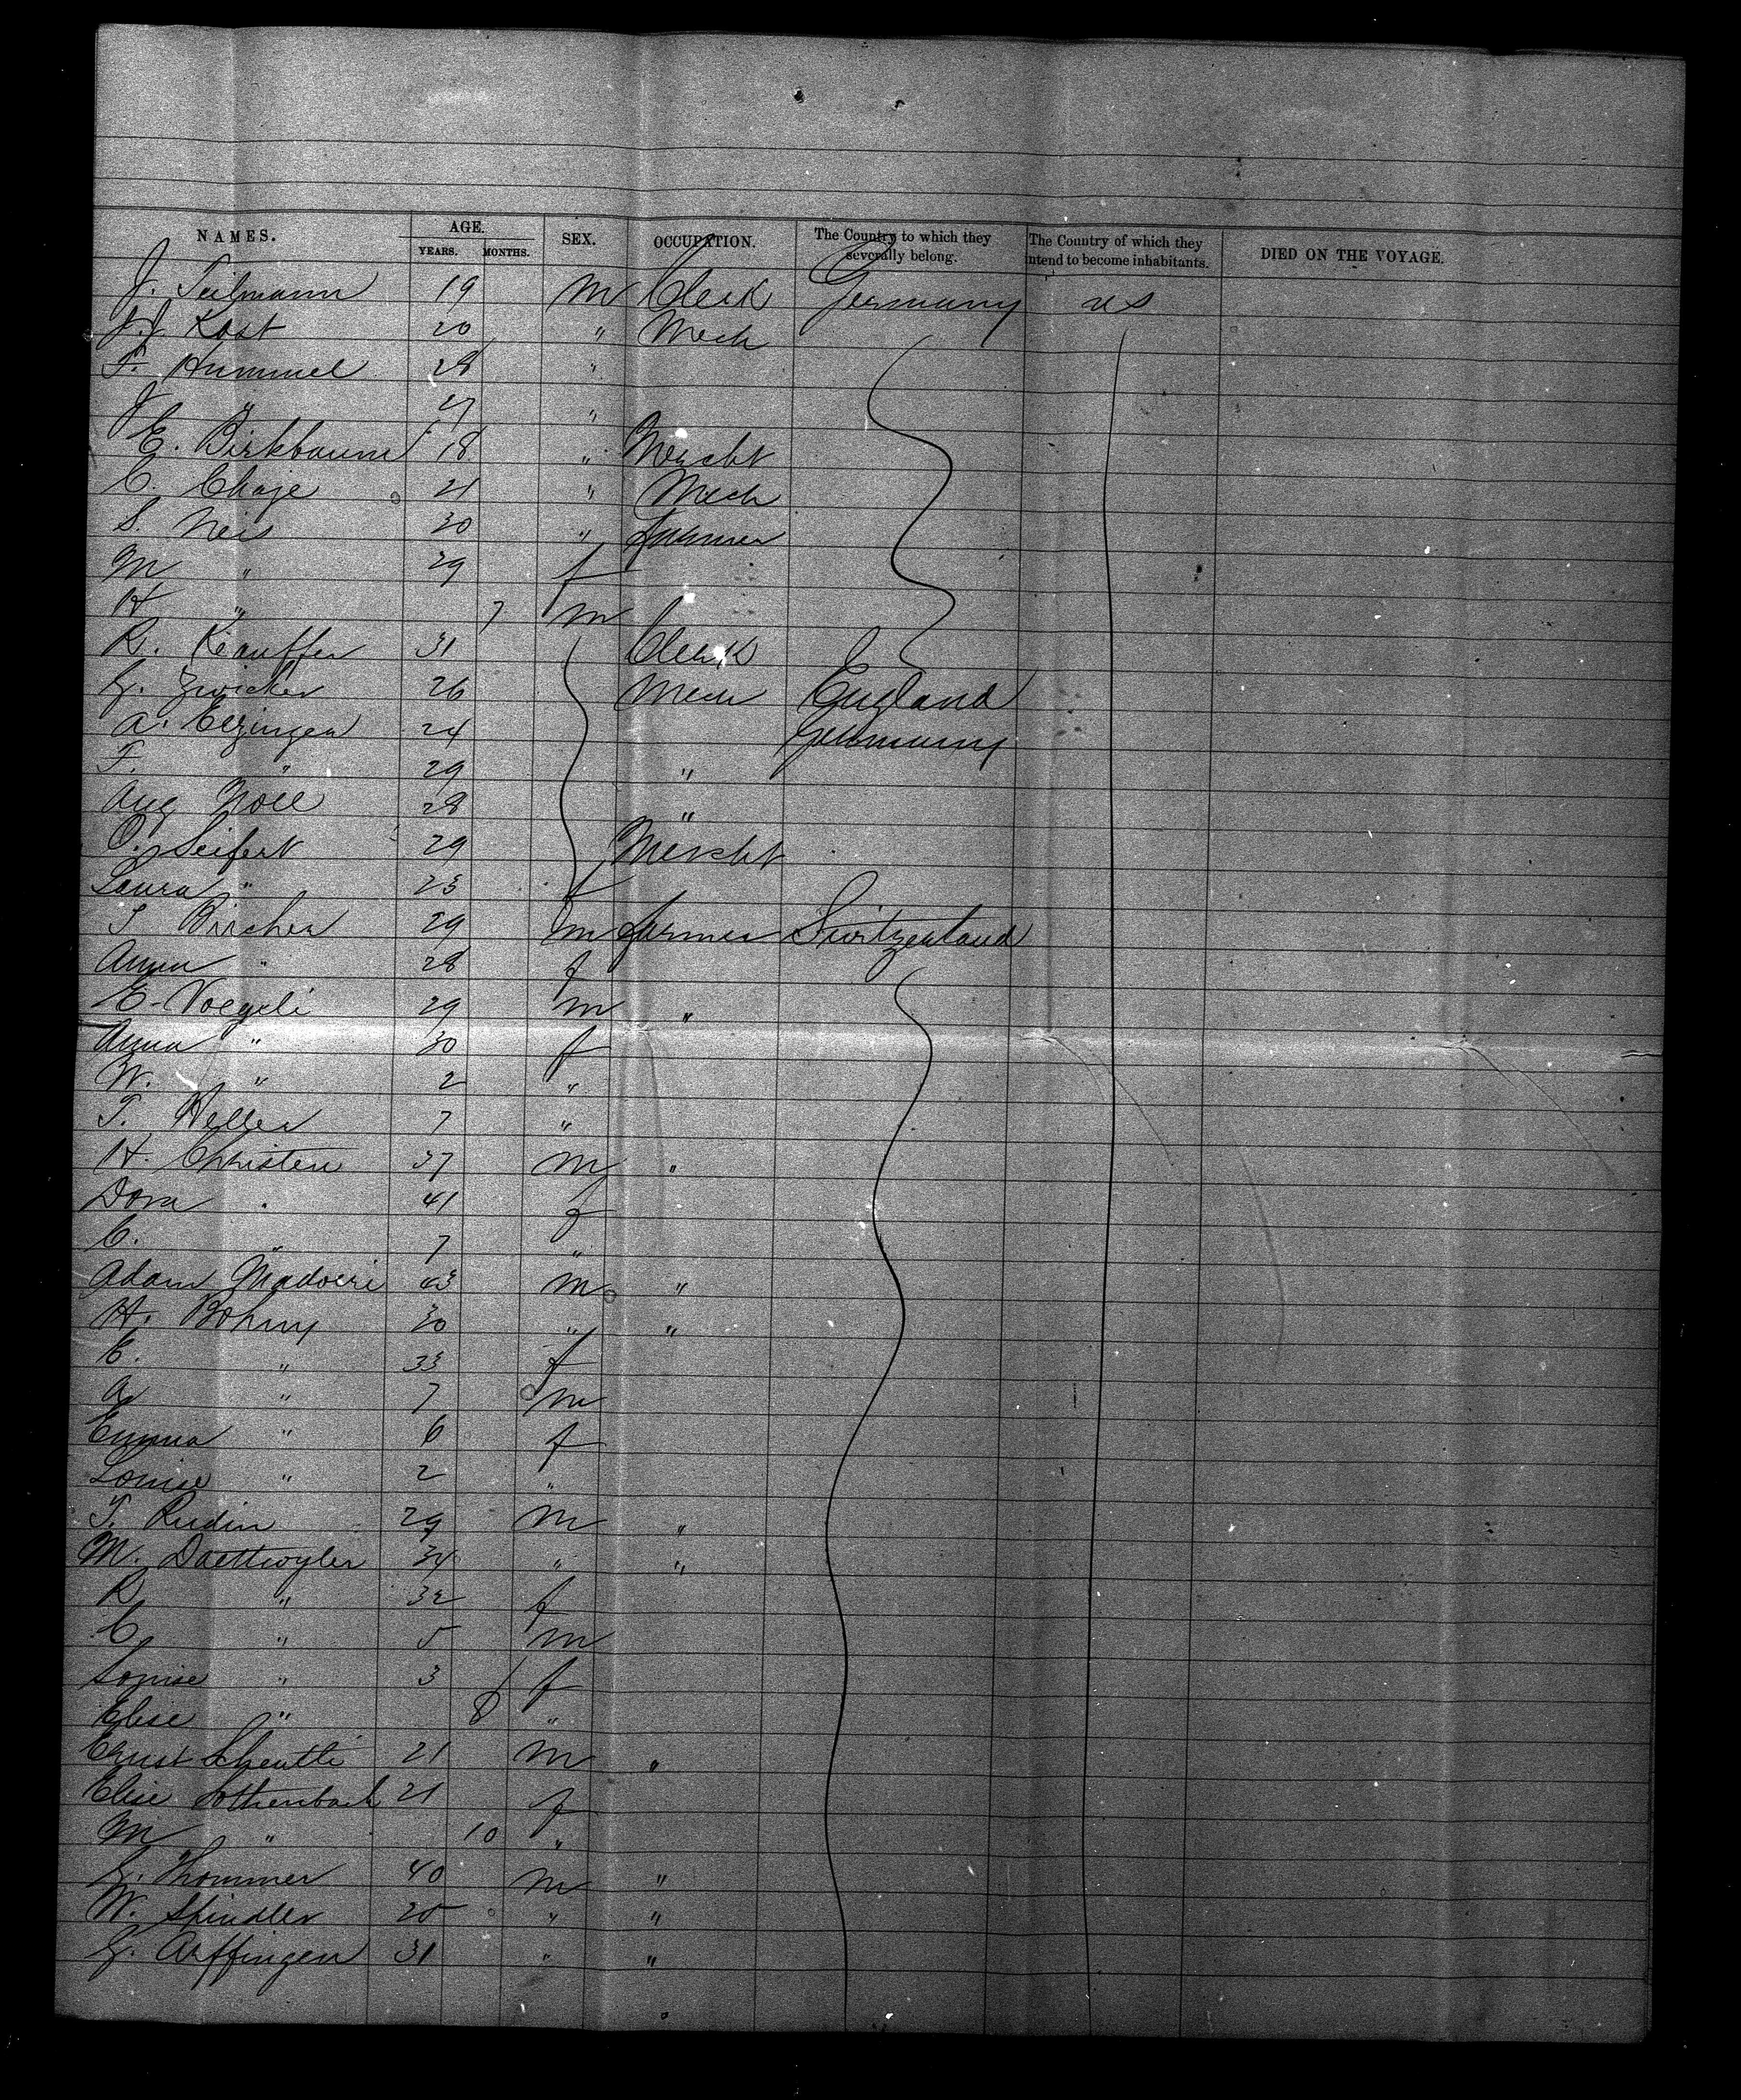 NAMES. AGE. YEARS. MONTHS. SEX. OCCUPATION. The Country to which they severally belong. The Country of which they intend to become inhabitants. DIED ON THE VOYAGE.
J. Teilmann 19 m Clerk Germany us
J. J. Kost 20 " Mech
F. Hummel 28 "
J " 27 "
E. Birkbaum 18 " Mercht
C. Chaje 21 " Mech
S. Neis 30 " farmer
M " 29 f
H " 7 m
R. Kauffer 31 Clerk
G. Zwicker 26 Mech England
A. Elzinger 24 Germany
F. " 29 "
Aug Noll 28 "
O. Seifert 29 Mercht
Laura " 23 f
J Bircher 29 m farmer Switzerland
Anna " 28 f
E. Voegeli 29 m "
Anna " 30 f
W. " 2 "
T. Heller 7 "
H. Christen 37 m "
Dora " 41 f
C. " 7 "
Adam Madoeri 43 m "
H. Bohny 30 " "
E. " 33 f
A " 7 m
Emma " 6 f
Louise " 2 "
T. Rudin 29 m "
M. Daettwyler 34 " "
R " 32 f
C " 5 m
Louise " 3 f
Elise " 8 "
Ernst Scheutti 21 m "
Elise Lothenbach 21 f
M " 10 "
G. Thommer 40 m "
W. Spindler 25 " "
G. Arffinger 31 " "